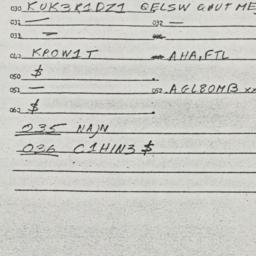 030 KUK3R1DZ1 GELSW GOUT ME
031 — 032 —
033 —
040 KPOW1T AHA, FTL
050 $
051 — 052 AGL8OMB xx
060 $
035 NAJN
036 C1HIN3 $